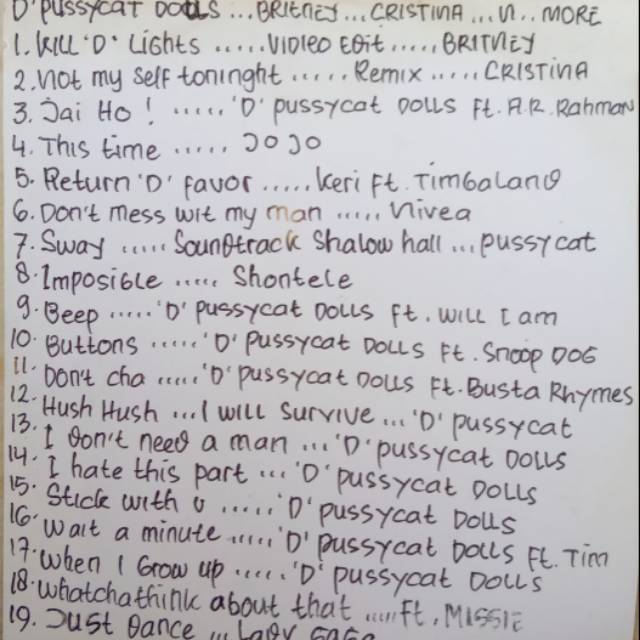 'D' PUSSYCAT DOLLS ... BRITNEY ... CRISTINA ... N .. MORE
1. KILL 'D' Lights ..... VIDIEO EDIT ..... BRITNEY
2. not my self toninght ..... Remix ..... CRISTINA
3. Jai Ho ! ..... 'D' pussycat DOLLS Ft. A.R. Rahman
4. This time ..... JOJO
5. Return 'D' Favor ..... keri Ft. Timbaland
6. Don't mess wit my man ..... Nivea
7. Sway ..... Soundtrack Shalow hall ... pussycat
8. Imposible ..... Shontele
9. Beep ..... 'D' pussycat DOLLS Ft. Will I am
10. Buttons ..... 'D' pussycat DOLLS Ft. Snoop DOG
11. Don't cha ..... 'D' pussycat DOLLS Ft. Busta Rhymes
12. Hush Hush ... I will survive ... 'D' pussycat
13. I don't need a man ... 'D' pussycat DOLLS
14. I hate this part ... 'D' pussycat DOLLS
15. Stick with U ..... 'D' pussycat DOLLS
16. Wait a minute ..... 'D' pussycat DOLLS Ft. Tim
17. When I Grow up ..... 'D' pussycat DOLLS
18. Whatchathink about that ..... Ft. MISSIE
19. Just Dance ... Lady GaGa